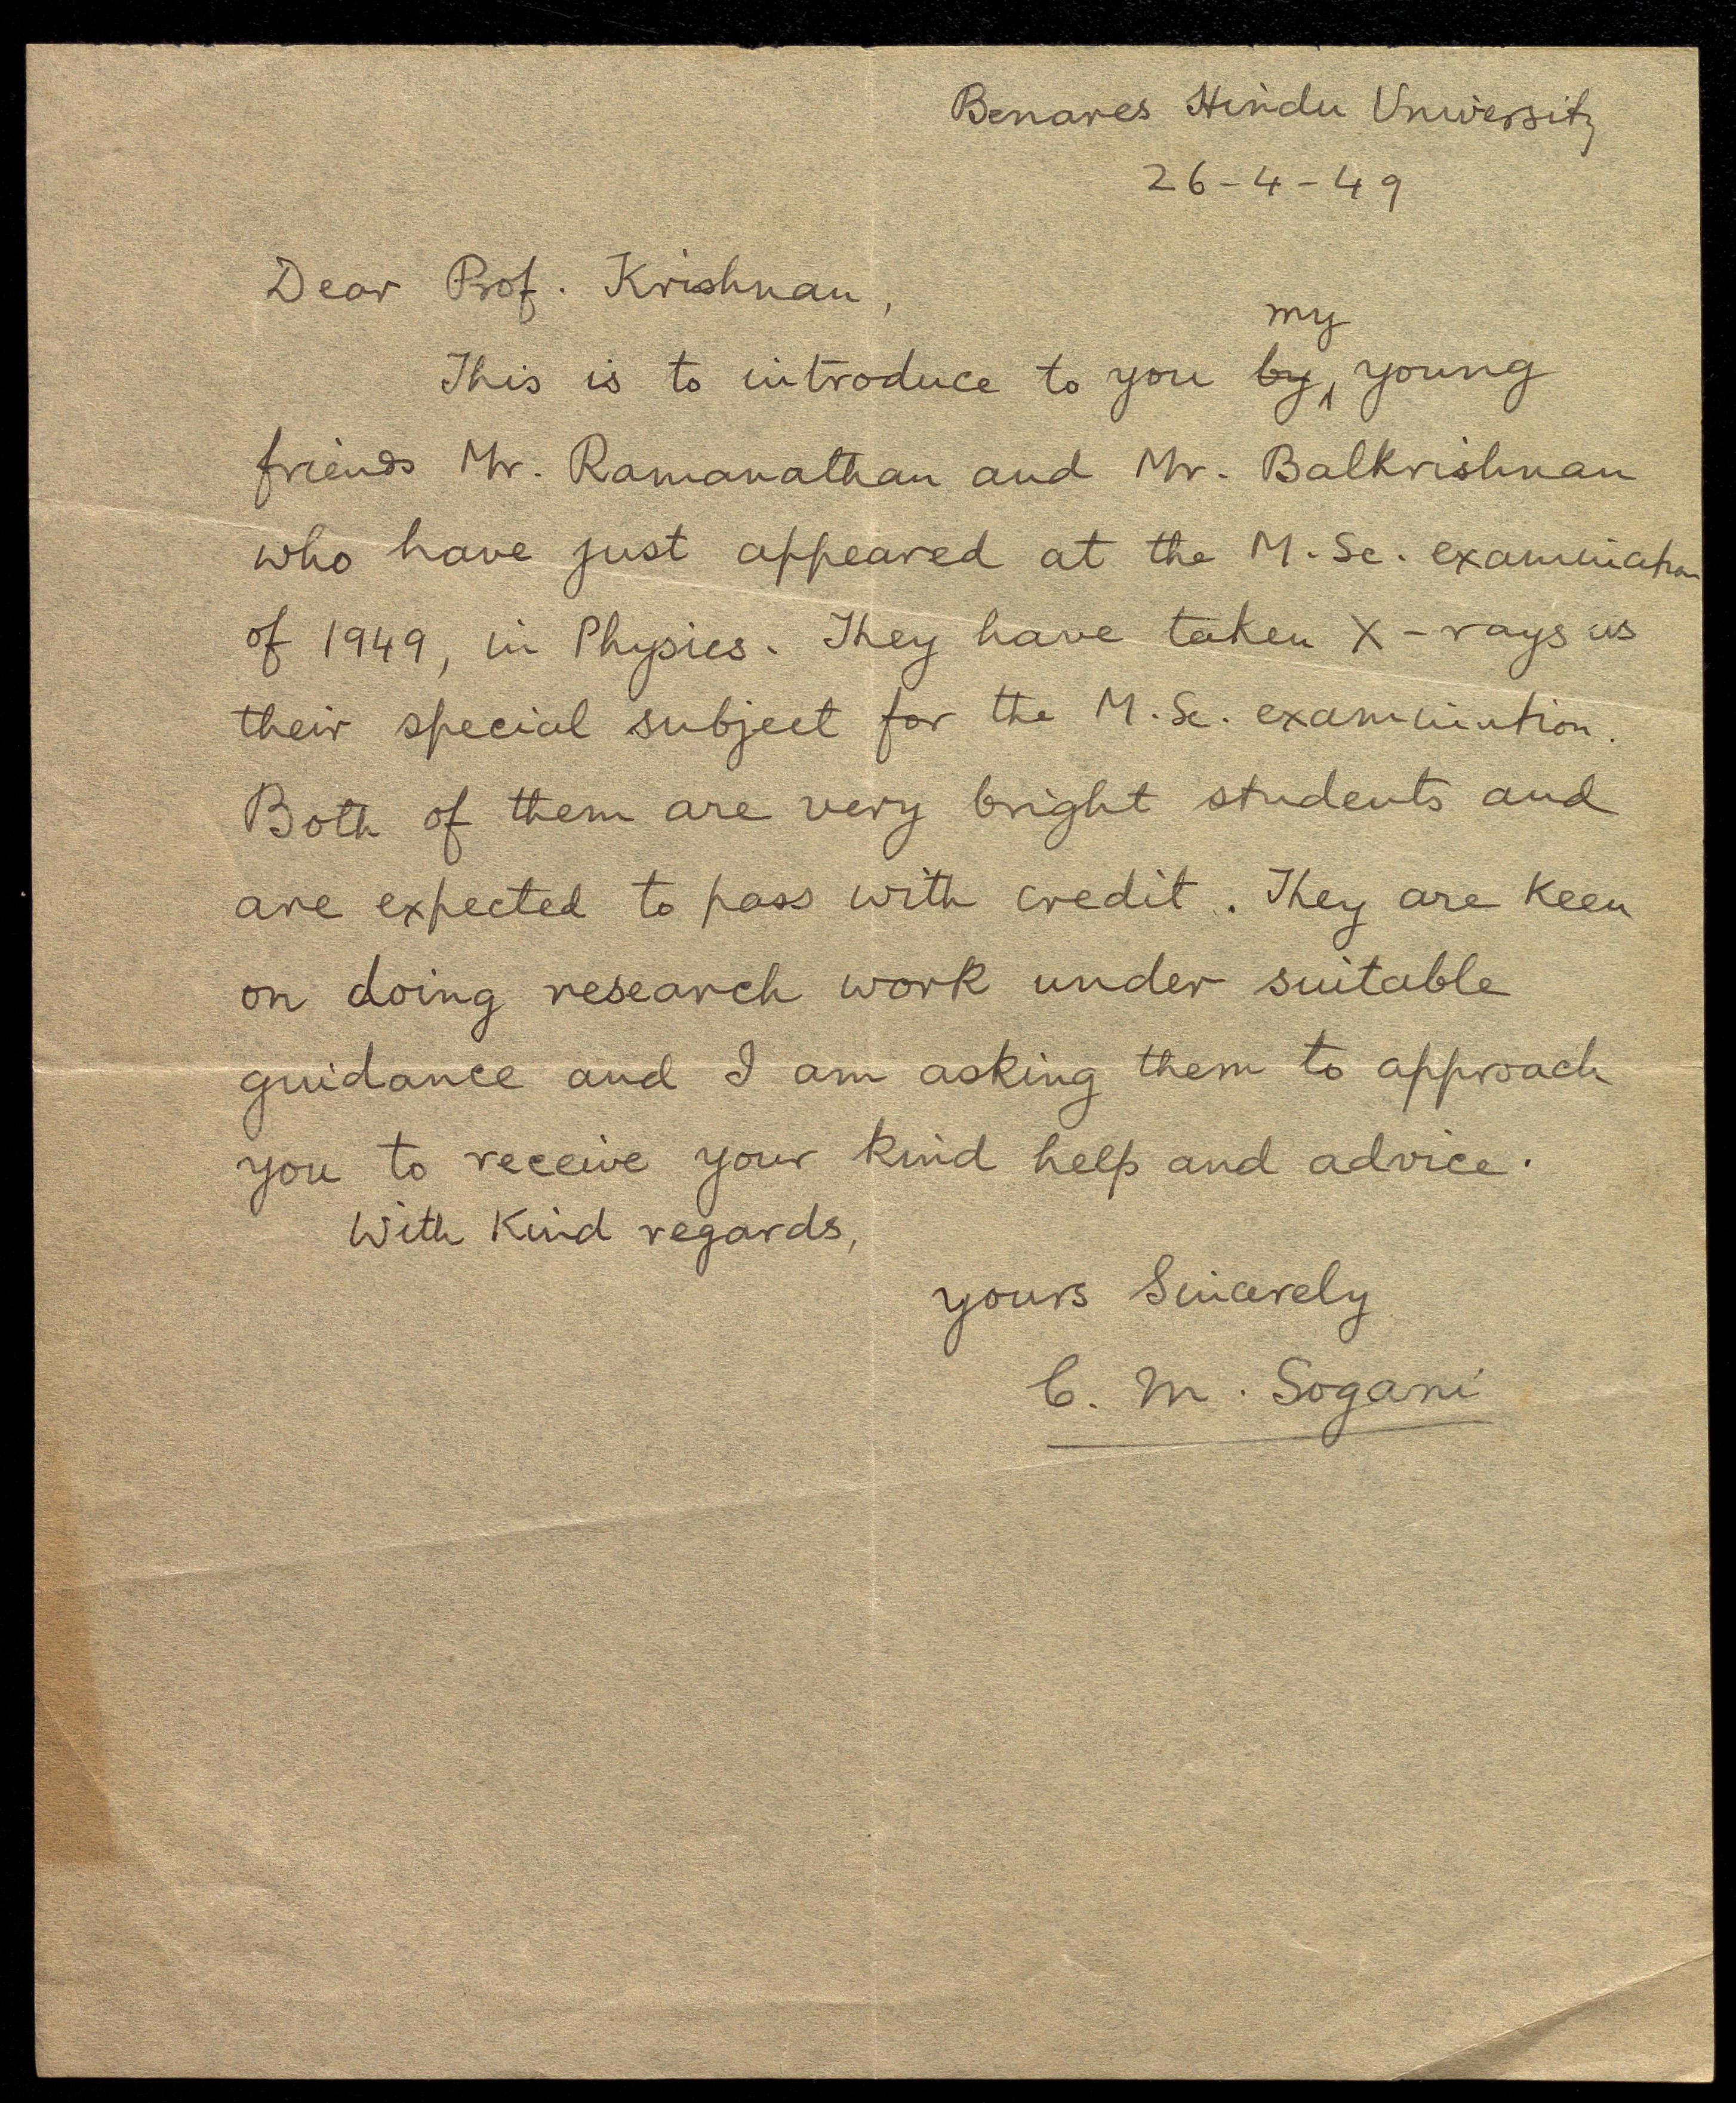 Benares Hindu University
26-4-49
Dear Prof. Krishnan,
my
This is to introduce to you by young
friends Mr. Ramanathan and Mr. Balkrishnan
who have just appeared at the M.Sc. examination
of 1949, in Physics. They have taken X-rays as
their special subject for the M.Sc. examination.
Both of them are very bright students and
are expected to pass with credit. They are keen
on doing research work under suitable
guidance and I am asking them to approach
you to receive your kind help and advice.
With kind regards,
yours Sincerely
C. M. Sogani